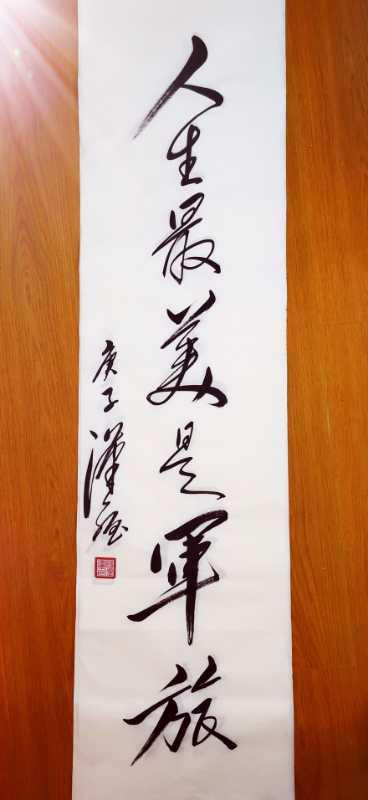 人生最美是軍旅
庚子漢